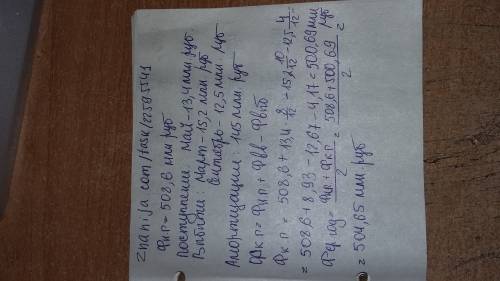 znanija com/task/22595541
Фнп = 508,6 млн руб
Поступлении: май - 13,4 млн руб
Выбытии: март - 15,2 млн руб
октябрь - 12,5 млн руб
Амортизации 115 млн руб
Фкп = Фнп + Фвв - Фвыб
Фкп = 508,6 + 13,4 8/12 - 15,2 10/12 - 12,5 4/12 =
= 508,6 + 8,93 - 12,67 - 4,17 = 500,69 млн руб
Фср год = Фнп + Фкп / 2 = 508,6 + 500,69 / 2 =
= 504,65 млн руб